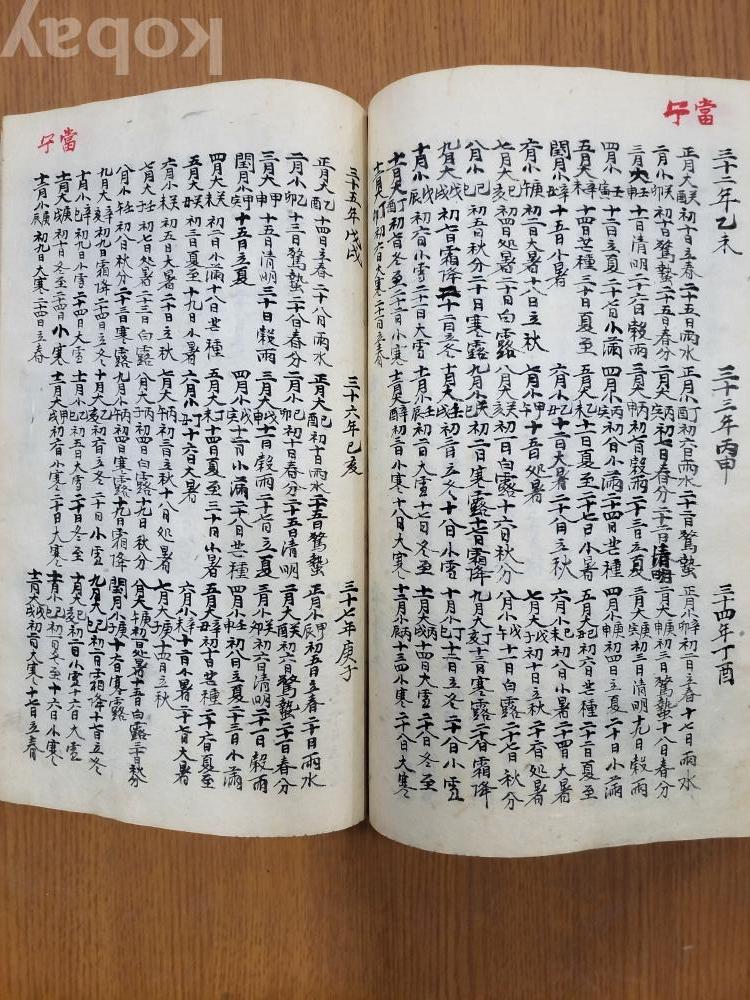 當
午
三十二年乙未
正月大癸酉初十日立春二十五日雨水
二月小癸卯初十日驚蟄二十五日春分
三月大壬申十一日清明二十六日穀雨
四月小壬寅十二日立夏二十七日小滿
五月大辛未十四日芒種三十日夏至
閏月小辛丑十五日小暑
六月小庚午初二日大暑十八日立秋
七月大己亥初四日処暑二十日白露
八月小己巳初五日秋分二十日寒露
九月大戊戌初七日霜降二十二日立冬
十月小戊辰初六日小雪二十日大雪
十一月大丁酉初七日冬至二十二日小寒
十二月大丁卯初六日大寒二十一日立春
三十三年丙申
正月小丁酉初六日雨水二十一日驚蟄
二月大丙寅初七日春分二十二日清明
三月小丙申初七日穀雨二十三日立夏
四月小丙寅初九日小滿二十四日芒種
五月大乙未十一日夏至二十七日小暑
六月小乙丑十二日大暑二十八日立秋
七月小甲午十五日処暑
八月大癸亥初一日白露十六日秋分
九月小癸巳初二日寒露十七日霜降
十月大壬戌初三日立冬十八日小雪
十一月小壬辰初二日大雪十七日冬至
十二月大辛酉初三日小寒十八日大寒
三十四年丁酉
正月小辛卯初二日立春十七日雨水
二月大庚申初三日驚蟄十八日春分
三月大庚寅初三日清明十九日穀雨
四月小庚申初四日立夏二十日小滿
五月大己丑初六日芒種二十二日夏至
六月小己未初八日小暑二十四日大暑
七月大戊子初十日立秋二十六日処暑
八月小戊午十一日白露二十七日秋分
九月大丁亥十三日寒露二十八日霜降
十月小丁巳十三日立冬二十八日小雪
十一月大丙戌十四日大雪二十八日冬至
十二月小丙辰十三日小寒二十八日大寒
當
午
三十五年戊戌
正月大乙酉十四日立春二十八日雨水
二月小乙卯十三日驚蟄二十八日春分
三月大甲申十五日清明三十日穀雨
閏月小甲寅十五日立夏
四月大癸未初二日小滿十八日芒種
五月大癸丑初三日夏至十九日小暑
六月小癸未初五日大暑二十日立秋
七月大壬子初七日処暑二十三日白露
八月小壬午初八日秋分二十三日寒露
九月大辛亥初九日霜降二十四日立冬
十月小辛巳初九日小雪二十四日大雪
十一月大庚戌初十日冬至二十四日小寒
十二月小庚辰初九日大寒二十四日立春
三十六年己亥
正月大己酉初十日雨水二十五日驚蟄
二月小己卯初十日春分二十五日清明
三月大戊申十一日穀雨二十七日立夏
四月小戊寅十二日小滿二十八日芒種
五月大丁未十四日夏至三十日小暑
六月小丁丑十六日大暑
七月大丙午初三日立秋十八日処暑
八月大丙子初四日白露十九日秋分
九月小丙午初四日寒露十九日霜降
十月大乙亥初六日立冬二十日小雪
十一月小乙巳初五日大雪二十日冬至
十二月大甲戌初六日小寒二十日大寒
三十七年庚子
正月小甲辰初五日立春二十日雨水
二月大癸酉初六日驚蟄二十一日春分
三月小癸卯初六日清明二十一日穀雨
四月小壬申初八日立夏二十三日小滿
五月大辛丑初十日芒種二十六日夏至
六月小辛未十一日小暑二十七日大暑
七月大庚子十四日立秋
八月大庚午初一日処暑十五日白露三十日秋分
閏月小庚子十六日寒露
九月大己巳初二日霜降十七日立冬
十月小己亥初二日小雪十六日大雪
十一月小己巳初二日冬至十六日小寒
十二月大戊戌初二日大寒十七日立春
kobay